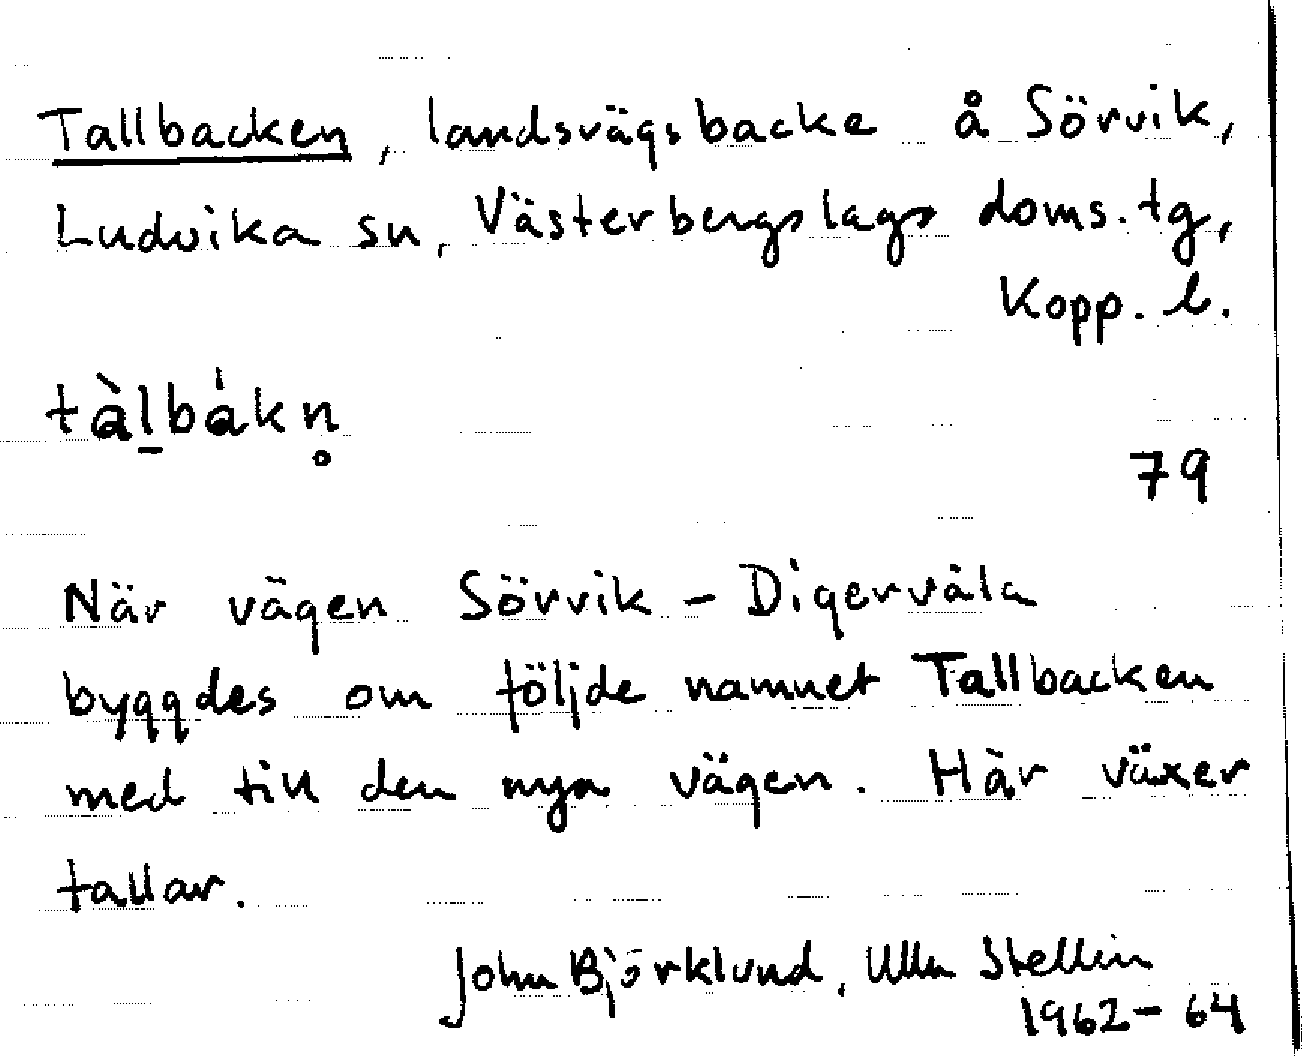 Tallbacken, landsvägsbacke å Sörvik,
Ludvika sn, Västerbergslags doms. tg,
Kopp. l.
tàl̠bákn̥
79
När vägen Sörvik - Digervåla
byggdes om följde namnet Tallbacken
med till den nya vägen. Här växer
tallar.
John Björklund, Ulla Stellin
1962-64